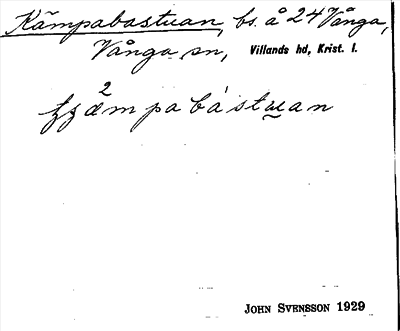 Kämpabastuan, bs. å 24 Vånga,
Vånga sn, Villands hd, Krist. l.
2
John Svensson 1929